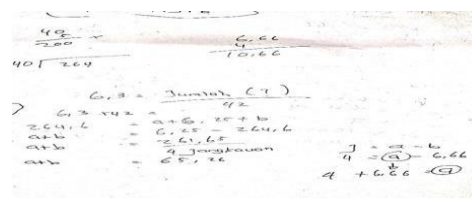 40
200
6,66
4
10,66
40 264
6,3 = Jumlah (?)
42
6,3 x 42 =
264,6 = a + 6,25 + b
a+b = 6,25 - 264,6
a+b = 261,65
4 Jangkauan
a+b = 65,26
J = a - b
4 = a - 6,66
4 + 6,66 = a